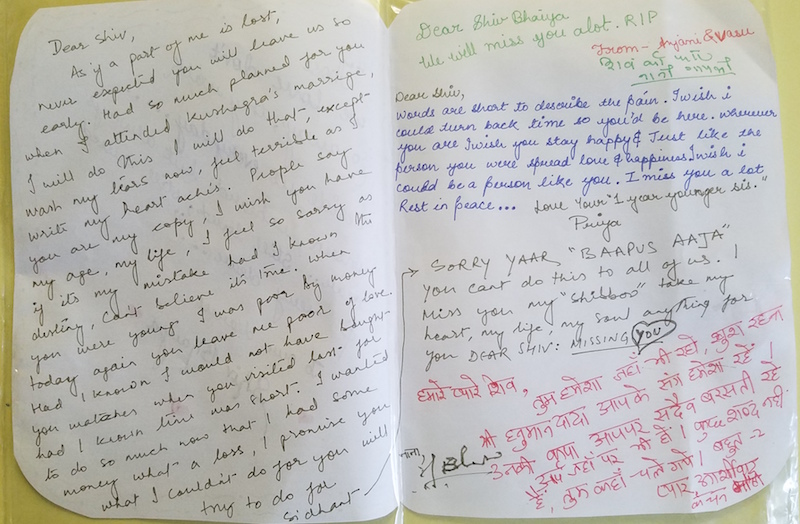 Dear Shiv,
As if a part of me is lost,
never expected you will leave us so
early. Had so much planned for you
when I attended Kushagra's marrige,
I will do this I will do that, except
wash my liars now, feel terrible as I
write my heart achis. People say
you are my copy, I wish you have
my age, my life, I feel so sorry as
if its my mistake had I known the
destiny, can't believe its true. when
you were young I was poor by money
today again you leave me poor of love.
Had I known I would not have bought
you watches when you visited last for
had I known time was short. I wanted
to do so much now that I had some
money what a loss, I promise you
what I couldn't do for you will
try to do for
Sidhant
Dear Shiv Bhaiya
We will miss you alot. RIP
From - Anjani & Vasu
Dear Shiv,
Words are short to describe the pain. I wish i
could turn back time so you'd be here. Wherever
you are I wish you stay happy & Just like the
person you were spread love & happiness. I wish i
could be a person like you. I miss you a lot
Rest in peace...
Love Your "1 year younger sis."
Priya
SORRY YAAR "BAAPUS AAJA"
You cant do this to all of us. I
Miss you my "Shibboo" take my
heart, my life, my soul anything for
you DEAR SHIV: MISSING YOU
हमारे प्यारे शिव,
तुम हमेशा जहाँ भी रहो, खुश रहना
श्री हनुमान दादा आप के संग हमेशा रहें।
उनकी कृपा आपपर सदैव बरसती रहे
आप जहाँ पर भी हों। कुछ शब्द नहीं
हैं, तुम कहाँ चले गये। बहुत-२
प्यार आशीर्वाद